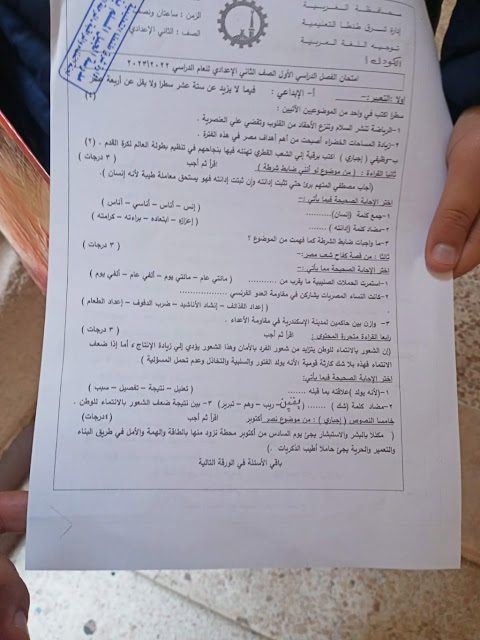 محافظة الغربية
إدارة شرق طنطا التعليمية
توجيه اللغة العربية
الكود أ
الزمن : ساعتان ونصف
الصف : الثاني الإعدادي
امتحان الفصل الدراسي الأول الصف الثاني الإعدادي للعام الدراسي ٢٠٢٢/٢٠٢٣
أولا :التعبير :- أ- الإبداعي : فيما لا يزيد عن ستة عشر سطرا ولا يقل عن أربعة عشر
سطرا اكتب في واحد من الموضوعين الآتيين :
١-الرياضة تنشر السلام وتنزع الأحقاد من القلوب وتقضي علي العنصرية .
٢-زيادة المساحات الخضراء أصبحت من أهم أهداف مصر في هذه الفترة .
ب-وظيفي ( إجباري ) اكتب برقية إلي الشعب القطري تهنئه فيها بنجاحهم في تنظيم بطولة العالم لكرة القدم . (٢)
ثانيا القراءة : ( من موضوع لو أنني ضابط شرطة ) اقرأ ثم أجب ( ٣ درجات )
(أجاب مصطفي المتهم برئ حتي تثبت إدانته وإن ثبتت إدانته فهو يستحق معاملة طيبة لأنه إنسان ).
اختر الإجابة الصحيحة فيما يأتي :-
١-جمع كلمة (إنسان) .......... ( إنس – أناس – أناسي – أناس )
٢-مضاد كلمة (إدانته ) .......... ( إعزازه – ابتعاده – براءته – كرامته )
٣-ما واجبات ضابط الشرطة كما فهمت من الموضوع ؟
ثالثا : من قصة كفاح شعب مصر:- ( ٣ درجات )
اختر الإجابة الصحيحة مما يأتي :-
١-استمرت الحملات الصليبية ما يقرب من .......... ( مائتي عام – مائتي يوم – ألفي عام – ألفي يوم )
٢-كانت النساء المصريات يشاركن في مقاومة العدو الفرنسي ..........
( إعداد القذائف – إنشاد الأناشيد – ضرب الدفوف – إعداد الطعام )
٣- وازن بين حاكمين لمدينة الإسكندرية في مقاومة الأعداء .
رابعا القراءة متحررة المحتوي : اقرأ ثم أجب ( ٣ درجات )
إن الشعور بالانتماء للوطن يتزايد من شعور الفرد بالأمان وهذا الشعور يؤدي إلي زيادة الإنتاج ، أما إذا ضعف
الانتماء فهذه بلا شك كارثة قومية لأنه يولد الفتور والسلبية والتخاذل وعدم تحمل المسئولية )
اختر الإجابة الصحيحة فيما يأتي:
١-(لأنه يولد )علاقته بما قبله .......... ( تعليل – نتيجة – تفصيل – سبب )
٢-مضاد كلمة (شك ) .......... ( يقين – ريب – وهم – تبرير ) ٣- بين نتيجة ضعف الشعور بالانتماء للوطن .
خامسا النصوص ( إجباري ) : من موضوع نصر أكتوبر اقرأ ثم أجب (٤درجات )
( هكذا بالبشر والاستبشار يجئ يوم السادس من أكتوبر محطة نزود منها بالطاقة والهمة والأمل في طريق البناء
والتعمير والحرية يجئ حاملا أطيب الذكريات . )
باقي الأسئلة في الورقة التالية